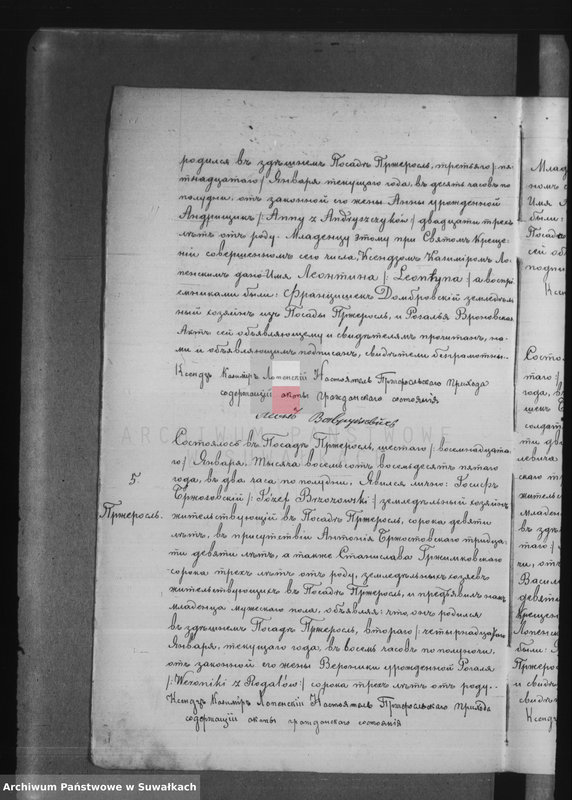 родился въ здѣшнемъ Посадѣ Пржеросль, третьяго /: пят-
надцатаго :/ Января текущаго года, въ десять часовъ по
полудни, отъ законной его жены Анны урожденной
Андрищикъ /: Anny z Andryszczyków :/ двадцати трехъ
лѣтъ отъ роду. Младенцу этому при Святомъ Креще-
ніи совершенномъ сего числа, Ксендзомъ Казиміромъ Ло-
пенскимъ дано Имя Леонтина /: Leontyna :/ а воспрі-
емниками были: Францишекъ Домбровскій земледѣль-
ный хозяинъ изъ Посады Пржеросль, и Розалья Вроновская
Актъ сей объявляющему и свидѣтелямъ прочитанъ, на-
ми и объявляющимъ подписанъ, свидѣтели безграмотны.
Ксендзъ Казиміръ Лопенскій Настоятель Пржеросльскаго Прихода
содержащій акты гражданскаго состоянія
ARCHIWUM PAŃSTWOWE
W SUWAŁKACH
Состоялось въ Посадѣ Пржеросль, шестаго /: восемнадцата-
го :/ Января, Тысяча восемьсотъ восемьдесятъ пятаго
5
года, въ два часа по полудни. Явился лично: Іосифъ
Бржозовскій /: Józef Brzozowski :/ земледѣльный хозяинъ
Пржеросль.
жительствующій въ Посадѣ Пржеросль, сорока девяти
лѣтъ, въ присутствіи Антонія Бржостовскаго тридца-
ти девяти лѣтъ, а также Станислава Гржимковскаго
сорока трехъ лѣтъ отъ роду, земледѣльныхъ хозяевъ
жительствующихъ въ Посадѣ Пржеросль, и предъявилъ намъ
младенца мужескаго пола, объявляя: что онъ родился
въ здѣшнемъ Посадѣ Пржеросль, втораго /: четырнадцатаго
Января, текущаго года, въ восемь часовъ по полуночи,
отъ законной его жены Вероники урожденной Рогаля
/: Weroniki z Rogalów :/ сорока трехъ лѣтъ отъ роду.
Ксендзъ Казиміръ Лопенскій Настоятель Пржеросльскаго Прихода
содержащій акты гражданскаго состоянія
Archiwum Państwowe w Suwałkach